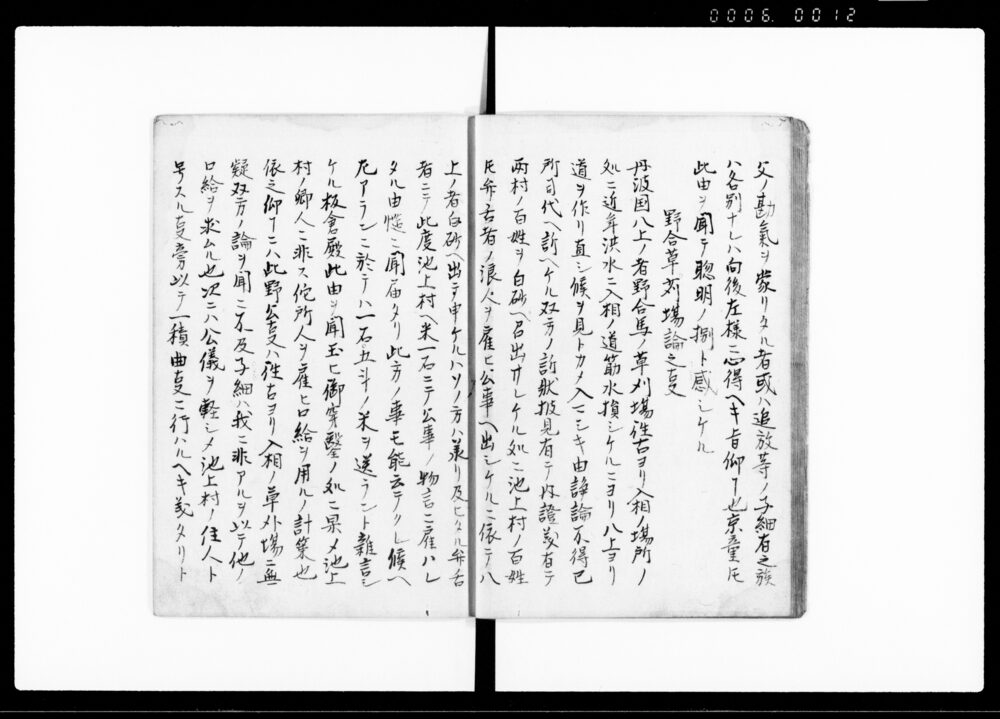 0006. 0012
父ノ勘氣ヲ蒙リタル者或ハ追放等ノ子細有之族
ハ各別ナレハ向後左様ニ心得ヘキ旨仰ケル也京童凡
此由ヲ聞テ聰明ノ捌ト感シケル
野合草苅場論之㕝
丹波国八上ノ者野合馬ノ草刈場往古ヨリ入相ノ場所ノ
処ニ近年洪水ニ入相ノ道筋水損シケルニヨリ八上ヨリ
道ヲ作リ直シ候ヲ見トカメ入マシキ由諍論不得已
所司代ヘ訴ヘケル双方ノ訴状披見有テ証義有テ
両村ノ百姓ヲ白砂ヘ召出サレケル処ニ池上村ノ百姓
氏弁舌者ノ浪人ヲ雇ヒ公事ヘ出シケルニ依テ八
上ノ者白砂ヘ出テ申ケルハソノ方ハ承リ及ヒタル弁舌
者ニテ此度池上村ヘ米一石ニテ公事ノ物言ニ雇ハレ
タル由慥ニ聞届タリ此方ノ事モ能云テクレ候ヘ
左アランニ於テハ一石五斗ノ米ヲ送ラント雜言シ
ケル板倉殿此由ヲ聞玉ヒ御穿鑿ノ処ニ果メ池上
村ノ郷人ニ非ス佗所人ヲ雇ヒ口給ヲ用ルノ計策也
依之仰ケルハ此野公㕝ハ往古ヨリ入相ノ草外場ニ無
疑双方ノ論ヲ聞ニ不及子細ハ我ニ非アルヲ以テ他ノ
口給ヲ求ムル也次ニハ公儀ヲ軽シメ池上村ノ住人ト
号スル㕝旁以テ一積曲㕝ニ行ハルヘキ義タリト